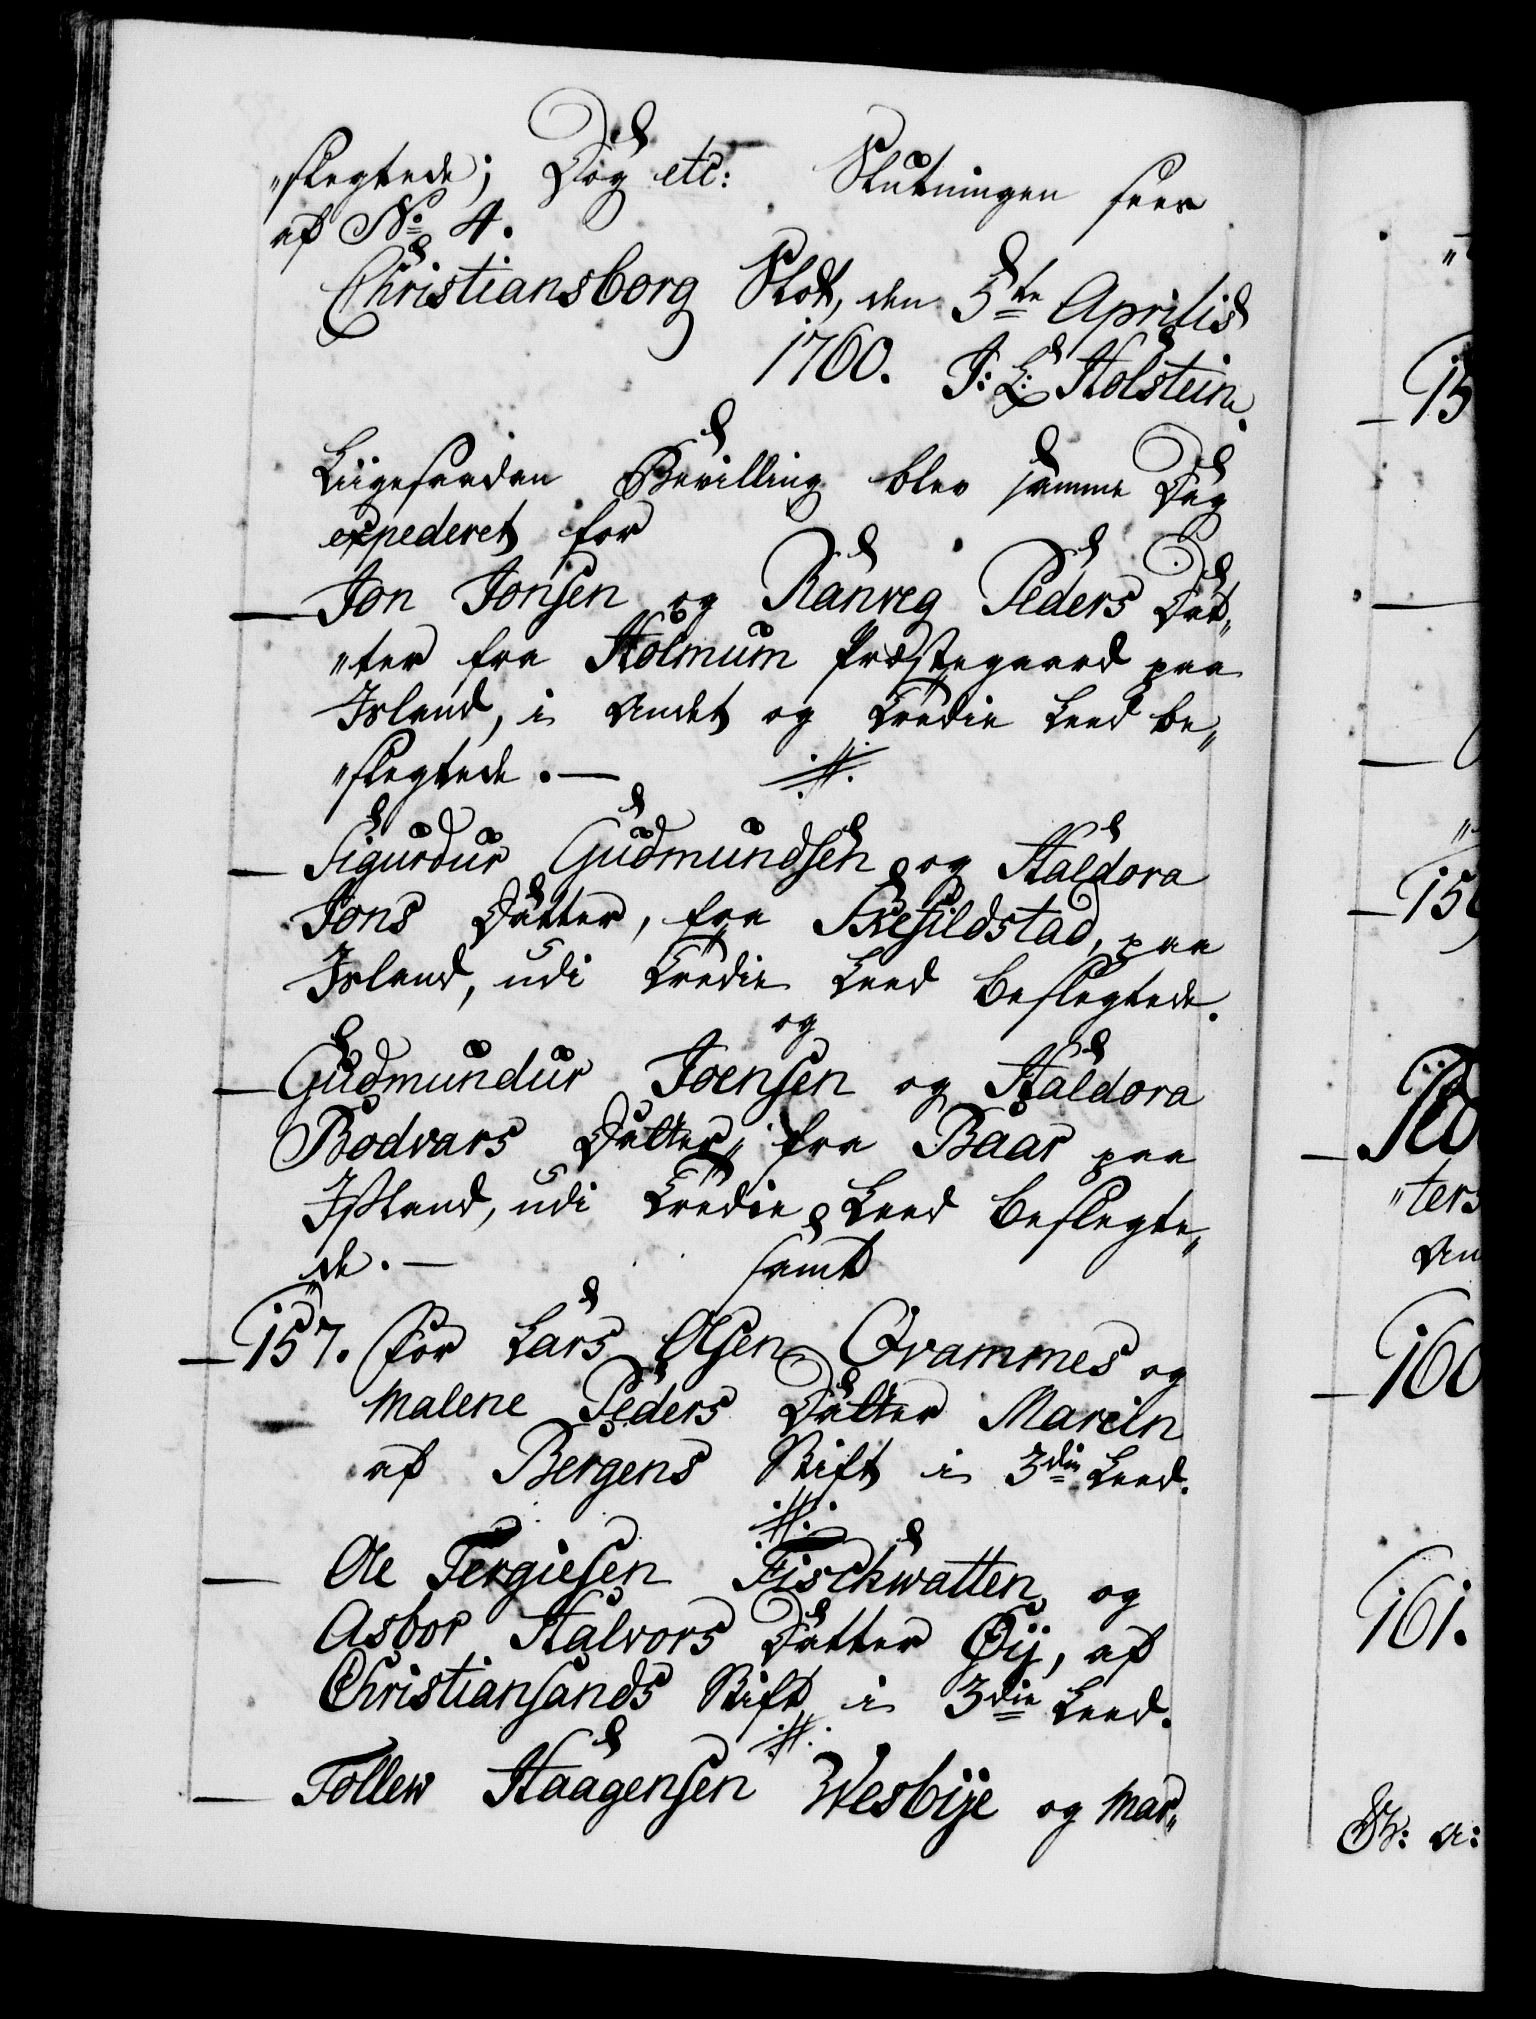 „slegtede; Dog etc: Slutningen sees
af No 4.
Christiansborg Slot, den 5te Aprilis
1760. J: L: Holstein.
Liigesaadan Bevilling blev samme Dag
expederet for
— Jon Jonsen og Ranveg Peders Dat„
„ter fra Holmum Præstegaard paa
Island, i Andet og Tredie Leed be„
„slegtede. —
— Sigurdur Gudmundsen og Haldora
Jons Datter, fra Skesildstad, paa
Island, udi Tredie Leed beslegtede.
og
— Gudmundur Joensen og Haldora
Bodvars Datter, fra Baar paa
Island, udi Tredie Leed beslegte„
„de. — samt
— 157. for Lars Olsen Qvammes og
Malene Peders Datter Marein
af Bergens Stift i 3die Leed.
— Ole Tergiesen Fischwatten og
Asbor Halvors Datter Øij, af
Christiansands Stift i 3die Leed.
— Tollew Haagensen Wesbÿe og Mar„
15
159
Ped
„ters
An
160
161.